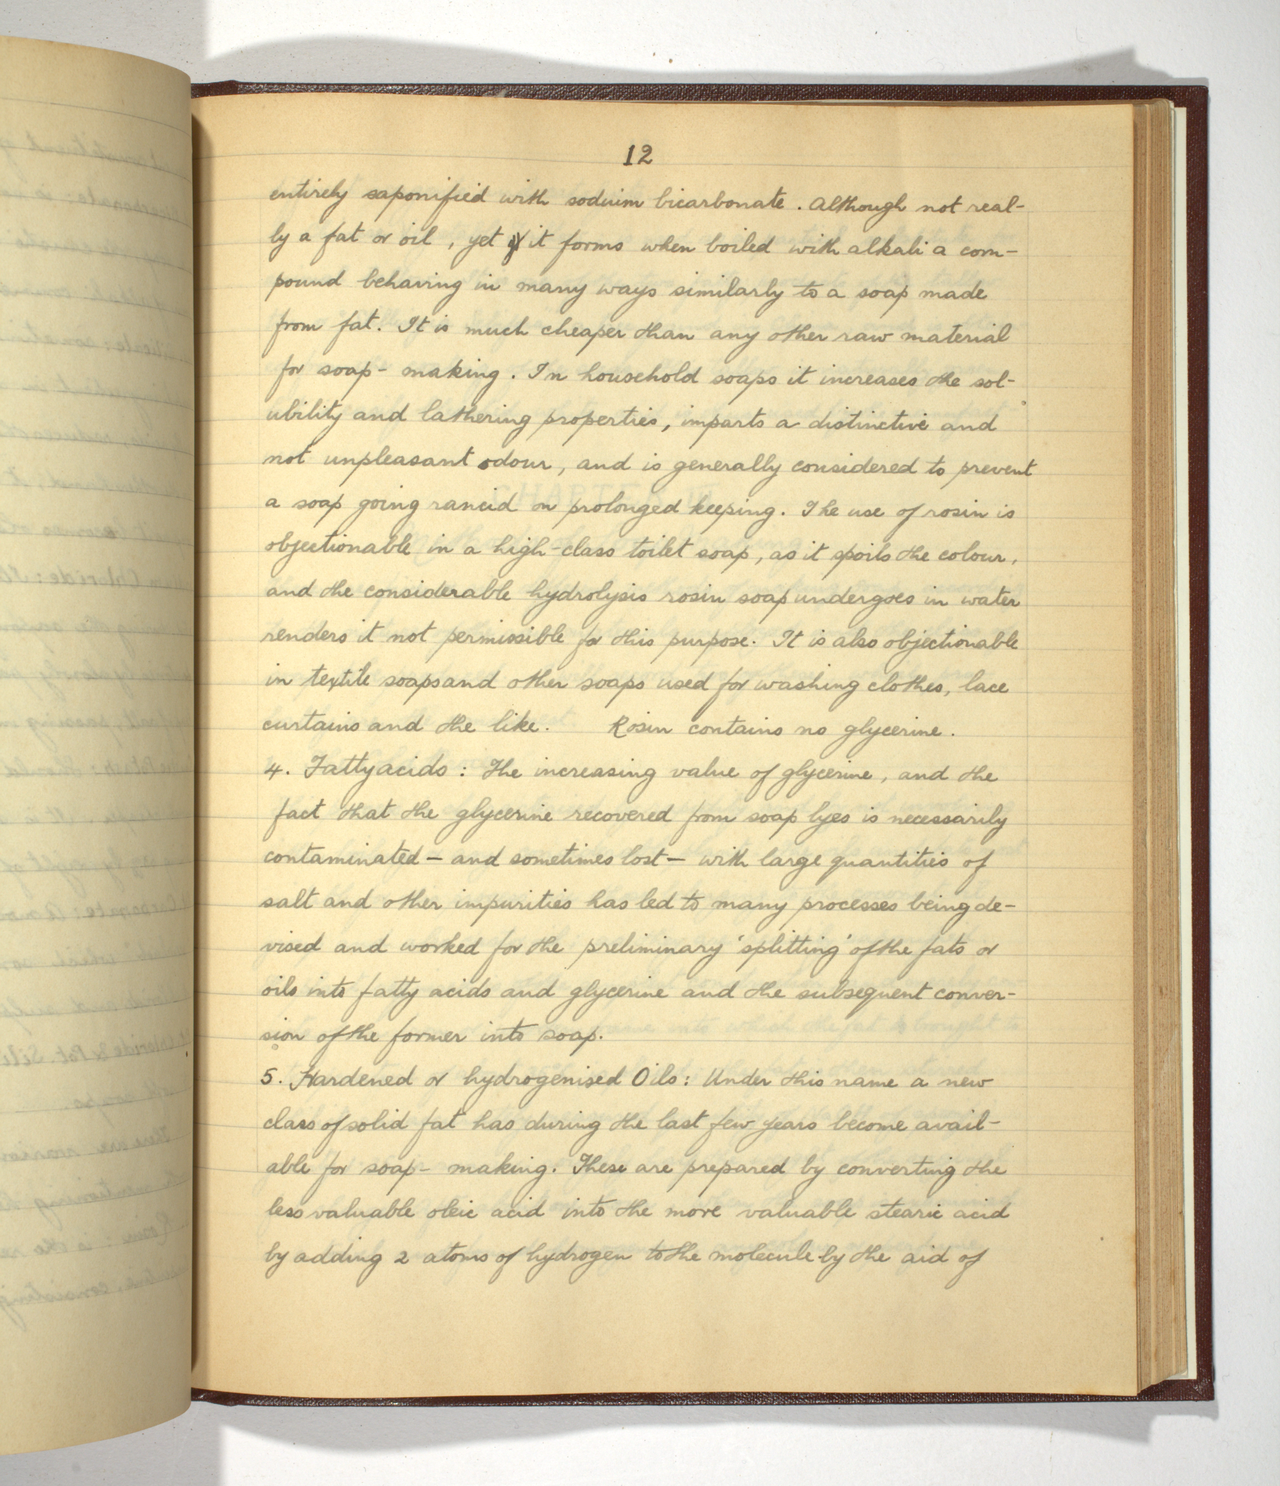 12
entirely saponified with sodium bicarbonate. Although not real-
ly a fat or oil, yet it forms when boiled with alkali a com-
pound behaving in many ways similarly to a soap made
from fat. It is much cheaper than any other raw material
for soap-making. In household soaps it increases the sol-
ubility and lathering properties, imparts a distinctive and
not unpleasant odour, and is generally considered to prevent
a soap going rancid on prolonged keeping. The use of rosin is
objectionable in a high-class toilet soap, as it spoils the colour,
and the considerable hydrolysis rosin soap undergoes in water
renders it not permissible for this purpose. It is also objectionable
in textile soaps and other soaps used for washing clothes, lace
curtains and the like. Rosin contains no glycerine.
4. Fatty acids: The increasing value of glycerine, and the
fact that the glycerine recovered from soap lyes is necessarily
contaminated — and sometimes lost — with large quantities of
salt and other impurities has led to many processes being de-
vised and worked for the preliminary 'splitting' of the fats or
oils into fatty acids and glycerine and the subsequent conver-
sion of the former into soap.
5. Hardened or hydrogenised Oils: Under this name a new
class of solid fat has during the last few years become avail-
able for soap-making. These are prepared by converting the
less valuable oleic acid into the more valuable stearic acid
by adding 2 atoms of hydrogen to the molecule by the aid of